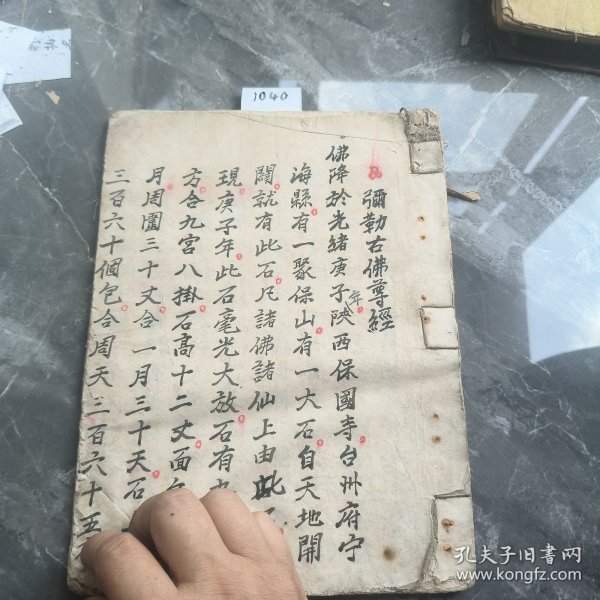 1040
彌勒古佛尊經
佛降於光緒庚子年陝西保國寺台州府宁
海縣有一聚保山有一大石自天地開
闢就有此石凡諸佛諸仙上由此石
現庚子年此石毫光大放石有九
方合九宮八掛石高十二丈面
月周圍三十丈合一月三十天石
三百六十個包合周天三百六十五
孔夫子旧书网
www.kongfz.com